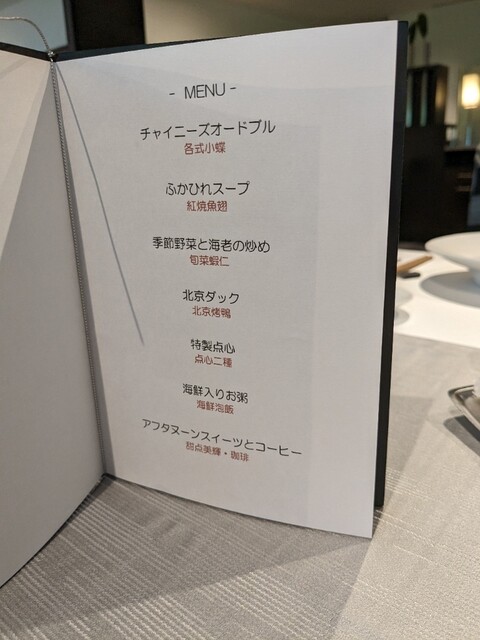 - MENU -
チャイニーズオードブル
各式小蝶
ふかひれスープ
紅焼魚翅
季節野菜と海老の炒め
旬菜蝦仁
北京ダック
北京烤鴨
特製点心
点心二種
海鮮入りお粥
海鮮泡飯
アフタヌーンスイーツとコーヒー
甜点美輝・珈琲